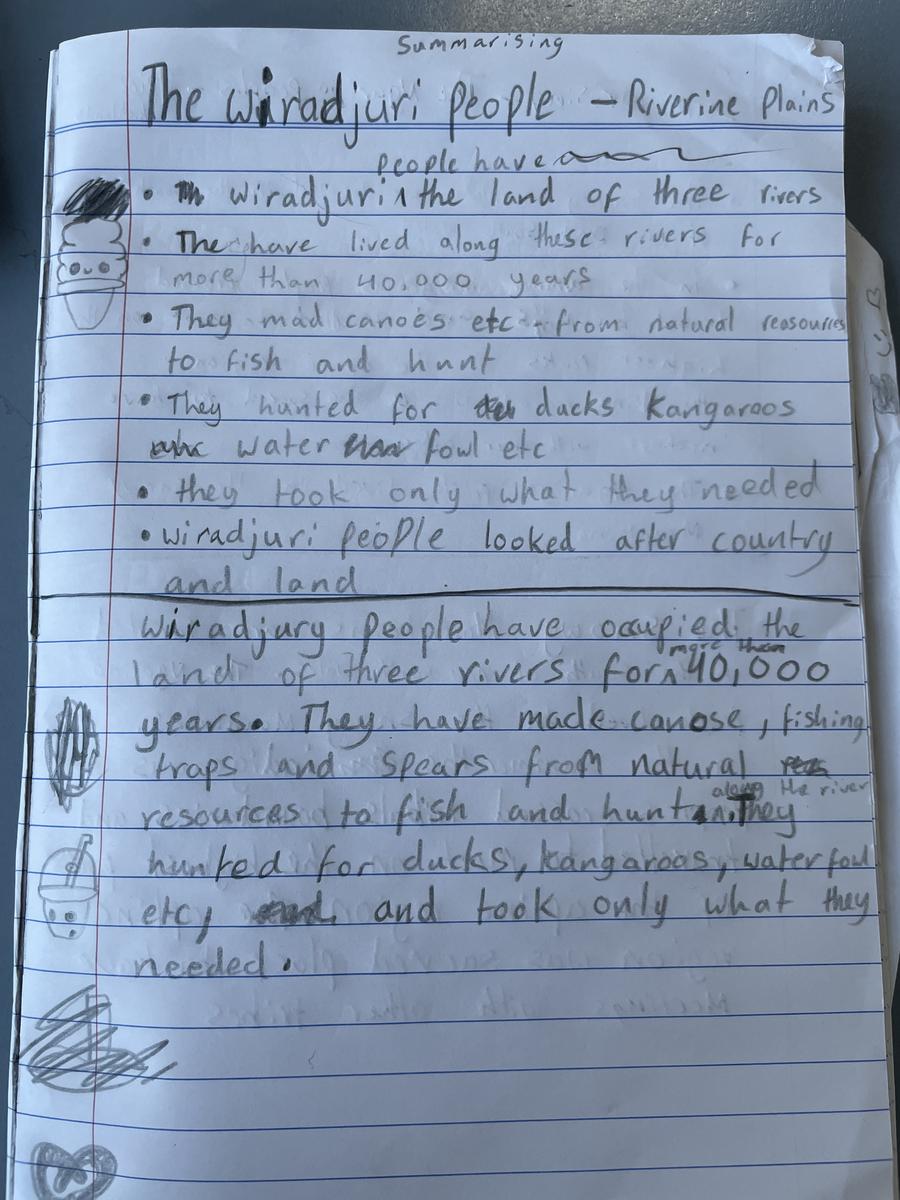 Summarising
The wiradjuri people — Riverine Plains
people have
• wiradjuri ^ the land of three rivers
• The have lived along these rivers for
more than 40,000 years
• They mad canoes etc - from natural reasources
to fish and hunt
• They hunted for ducks Kangaroos
water fowl etc
• they took only what they needed
• wiradjuri people looked after country
and land
wiradjury people have occupied the
more than
land of three rivers for ^ 40,000
years. They have made canose, fishing
traps and spears from natural
along the river
resources to fish and hunt ^. They
hunted for ducks, kangaroos, waterfowl
etc, and took only what they
needed.